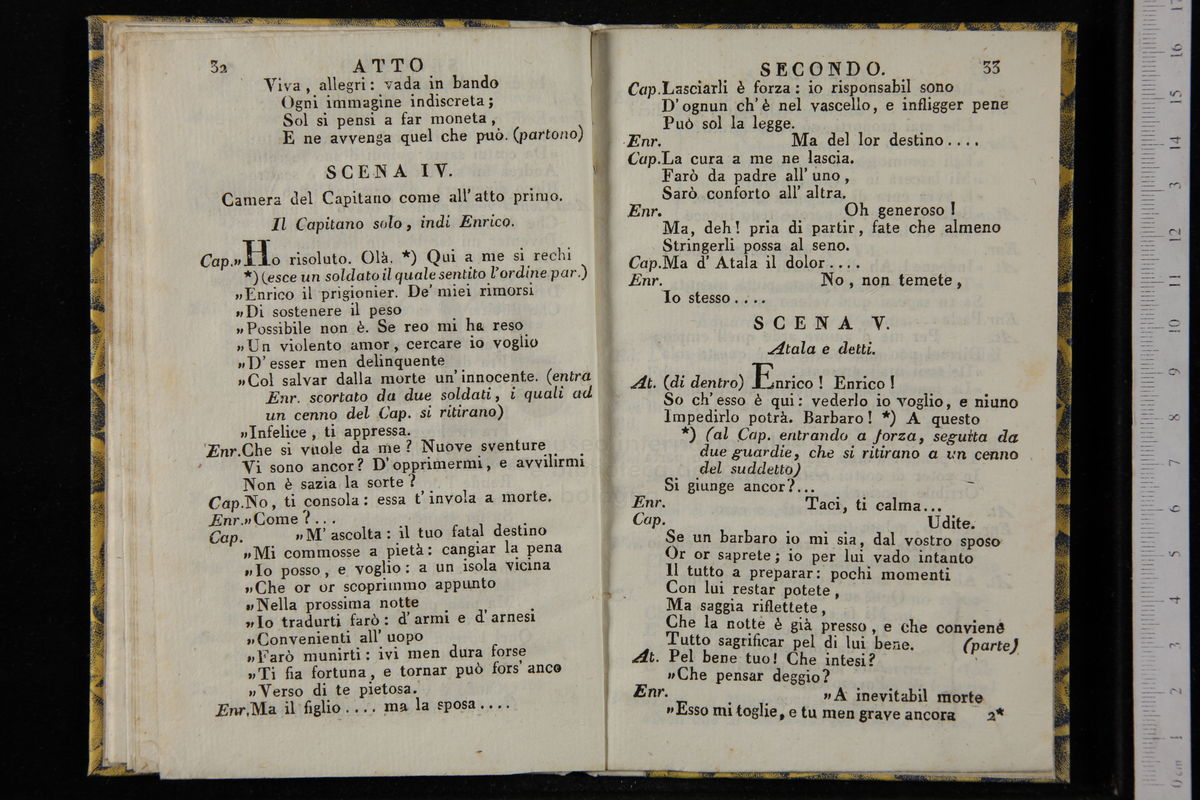 32 ATTO
Viva, allegri: vada in bando
Ogni immagine indiscreta;
Sol si pensi a far moneta,
E ne avvenga quel che può. (partono)
SCENA IV.
Camera del Capitano come all' atto primo.
Il Capitano solo, indi Enrico.
Cap.„Ho risoluto. Olà. *) Qui a me si rechi
*) (esce un soldato il quale sentito l'ordine par.)
„Enrico il prigionier. De' miei rimorsi
„Di sostenere il peso
„Possibile non è. Se reo mi ha reso
„Un violento amor, cercare io voglio
„D' esser men delinquente
„Col salvar dalla morte un' innocente. (entra
Enr. scortato da due soldati, i quali ad
un cenno del Cap. si ritirano)
„Infelice, ti appressa.
Enr.Che si vuole da me? Nuove sventure
Vi sono ancor? D' opprimermi, e avvilirmi
Non è sazia la sorte?
Cap.No, ti consola: essa t' invola a morte.
Enr.„Come?...
Cap. „M' ascolta: il tuo fatal destino
„Mi commosse a pietà: cangiar la pena
„Io posso, e voglio: a un isola vicina
„Che or or scoprimmo appunto
„Nella prossima notte
„Io tradurti farò: d' armi e d' arnesi
„Convenienti all' uopo
„Farò munirti: ivi men dura forse
„Ti fia fortuna, e tornar può fors' anco
„Verso di te pietosa.
Enr.Ma il figlio.... ma la sposa....
SECONDO. 33
Cap.Lasciarli è forza: io risponsabil sono
D' ognun ch' è nel vascello, e infligger pene
Può sol la legge.
Enr. Ma del lor destino....
Cap.La cura a me ne lascia.
Farò da padre all' uno,
Sarò conforto all' altra.
Enr. Oh generoso!
Ma, deh! pria di partir, fate che almeno
Stringerli possa al seno.
Cap.Ma d' Atala il dolor....
Enr. No, non temete,
Io stesso....
SCENA V.
Atala e detti.
At. (di dentro) Enrico! Enrico!
So ch' esso è qui: vederlo io voglio, e niuno
Impedirlo potrà. Barbaro! *) A questo
*) (al Cap. entrando a forza, seguita da
due guardie, che si ritirano a un cenno
del suddetto)
Si giunge ancor?...
Enr. Taci, ti calma...
Cap. Udite.
Se un barbaro io mi sia, dal vostro sposo
Or or saprete; io per lui vado intanto
Il tutto a preparar: pochi momenti
Con lui restar potete,
Ma saggia riflettete,
Che la notte è già presso, e che conviene
Tutto sagrificar pel di lui bene. (parte)
At. Pel bene tuo! Che intesi?
„Che pensar deggio?
Enr. „A inevitabil morte
„Esso mi toglie, e tu men grave ancora 2*